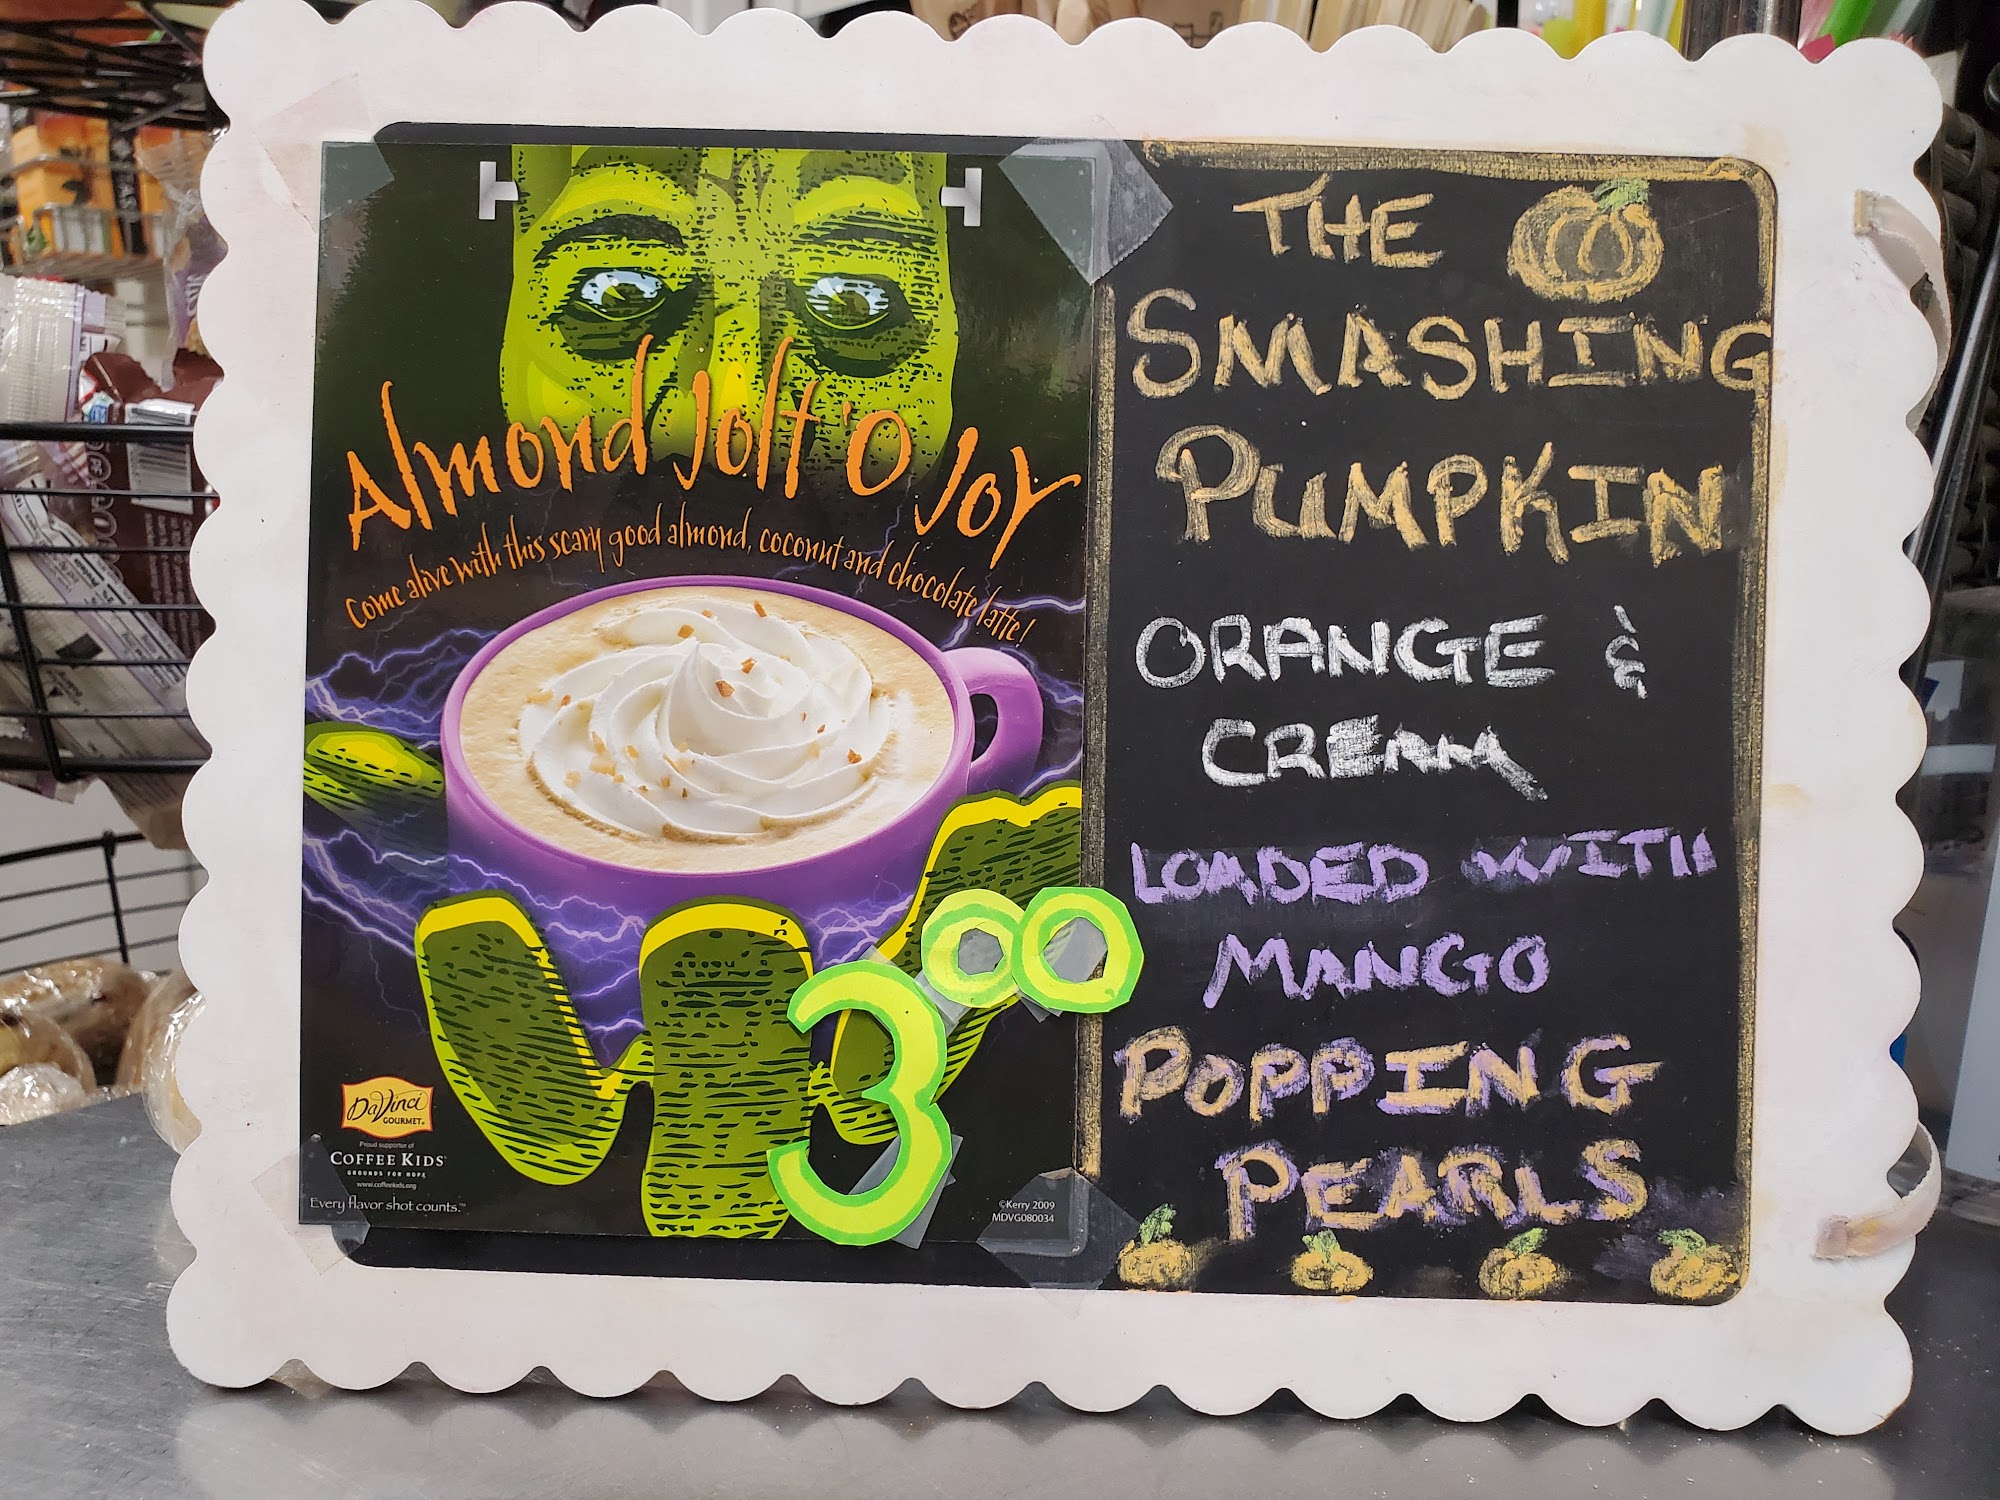 Almond Jolt 'O Joy
Come alive with this scary good almond, coconut and chocolate latte!
3.00
DaVinci
GOURMET®
Proud supporter of
COFFEE KIDS®
GROUNDS FOR HOPE
www.coffeekids.org
Every flavor shot counts.™
©Kerry 2009
MDVG080034
THE
SMASHING
PUMPKIN
ORANGE &
CREAM
LOADED WITH
MANGO
POPPING
PEARLS